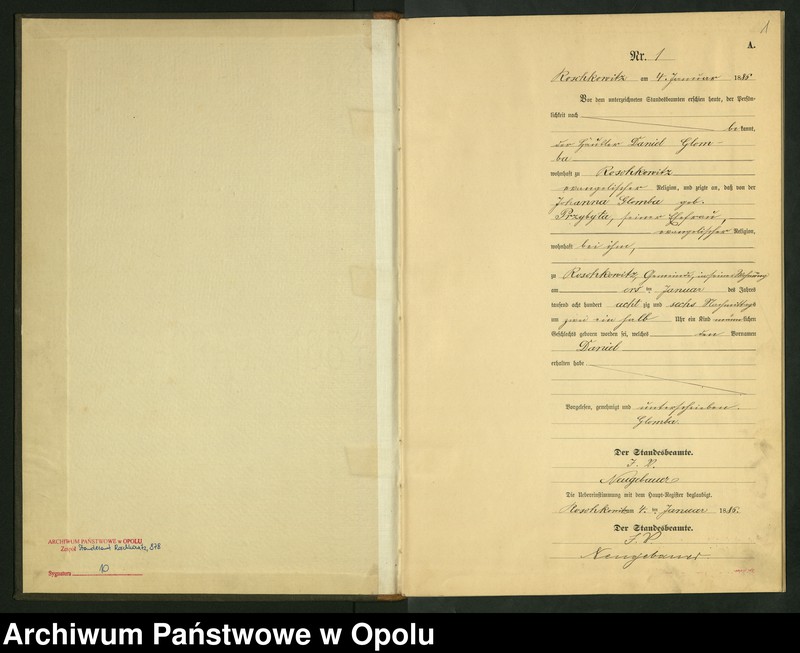 ARCHIWUM PAŃSTWOWE w OPOLU
Zespół Standesamt 578
Sygnatura 10
1
A.
Nr. 1
Roschkowitz am 4. Januar 1886
Vor dem unterzeichneten Standesbeamten erschien heute, der Persön-
lichkeit nach
bekannt,
der Häusler Daniel Glom-
ba
wohnhaft zu Roschkowitz
evangelischer Religion, und zeigte an, daß von der
Johanna Glomba geb.
Przybyla, seiner Ehefrau,
evangelischer Religion,
wohnhaft bei ihm,
zu Roschkowitz, Gemeinde, in seiner Wohnung
am ersten Januar des Jahres
tausend acht hundert achtzig und sechs Nachmittags
um zwei ein halb Uhr ein Kind männlichen
Geschlechts geboren worden sei, welches den Vornamen
Daniel
erhalten habe
Vorgelesen, genehmigt und unterschrieben.
Glomba
Der Standesbeamte.
I. V.
Neugebauer
Die Uebereinstimmung mit dem Haupt-Register beglaubigt.
Roschkowitz am 4. Januar 1886
Der Standesbeamte.
I. V.
Neugebauer
Archiwum Państwowe w Opolu